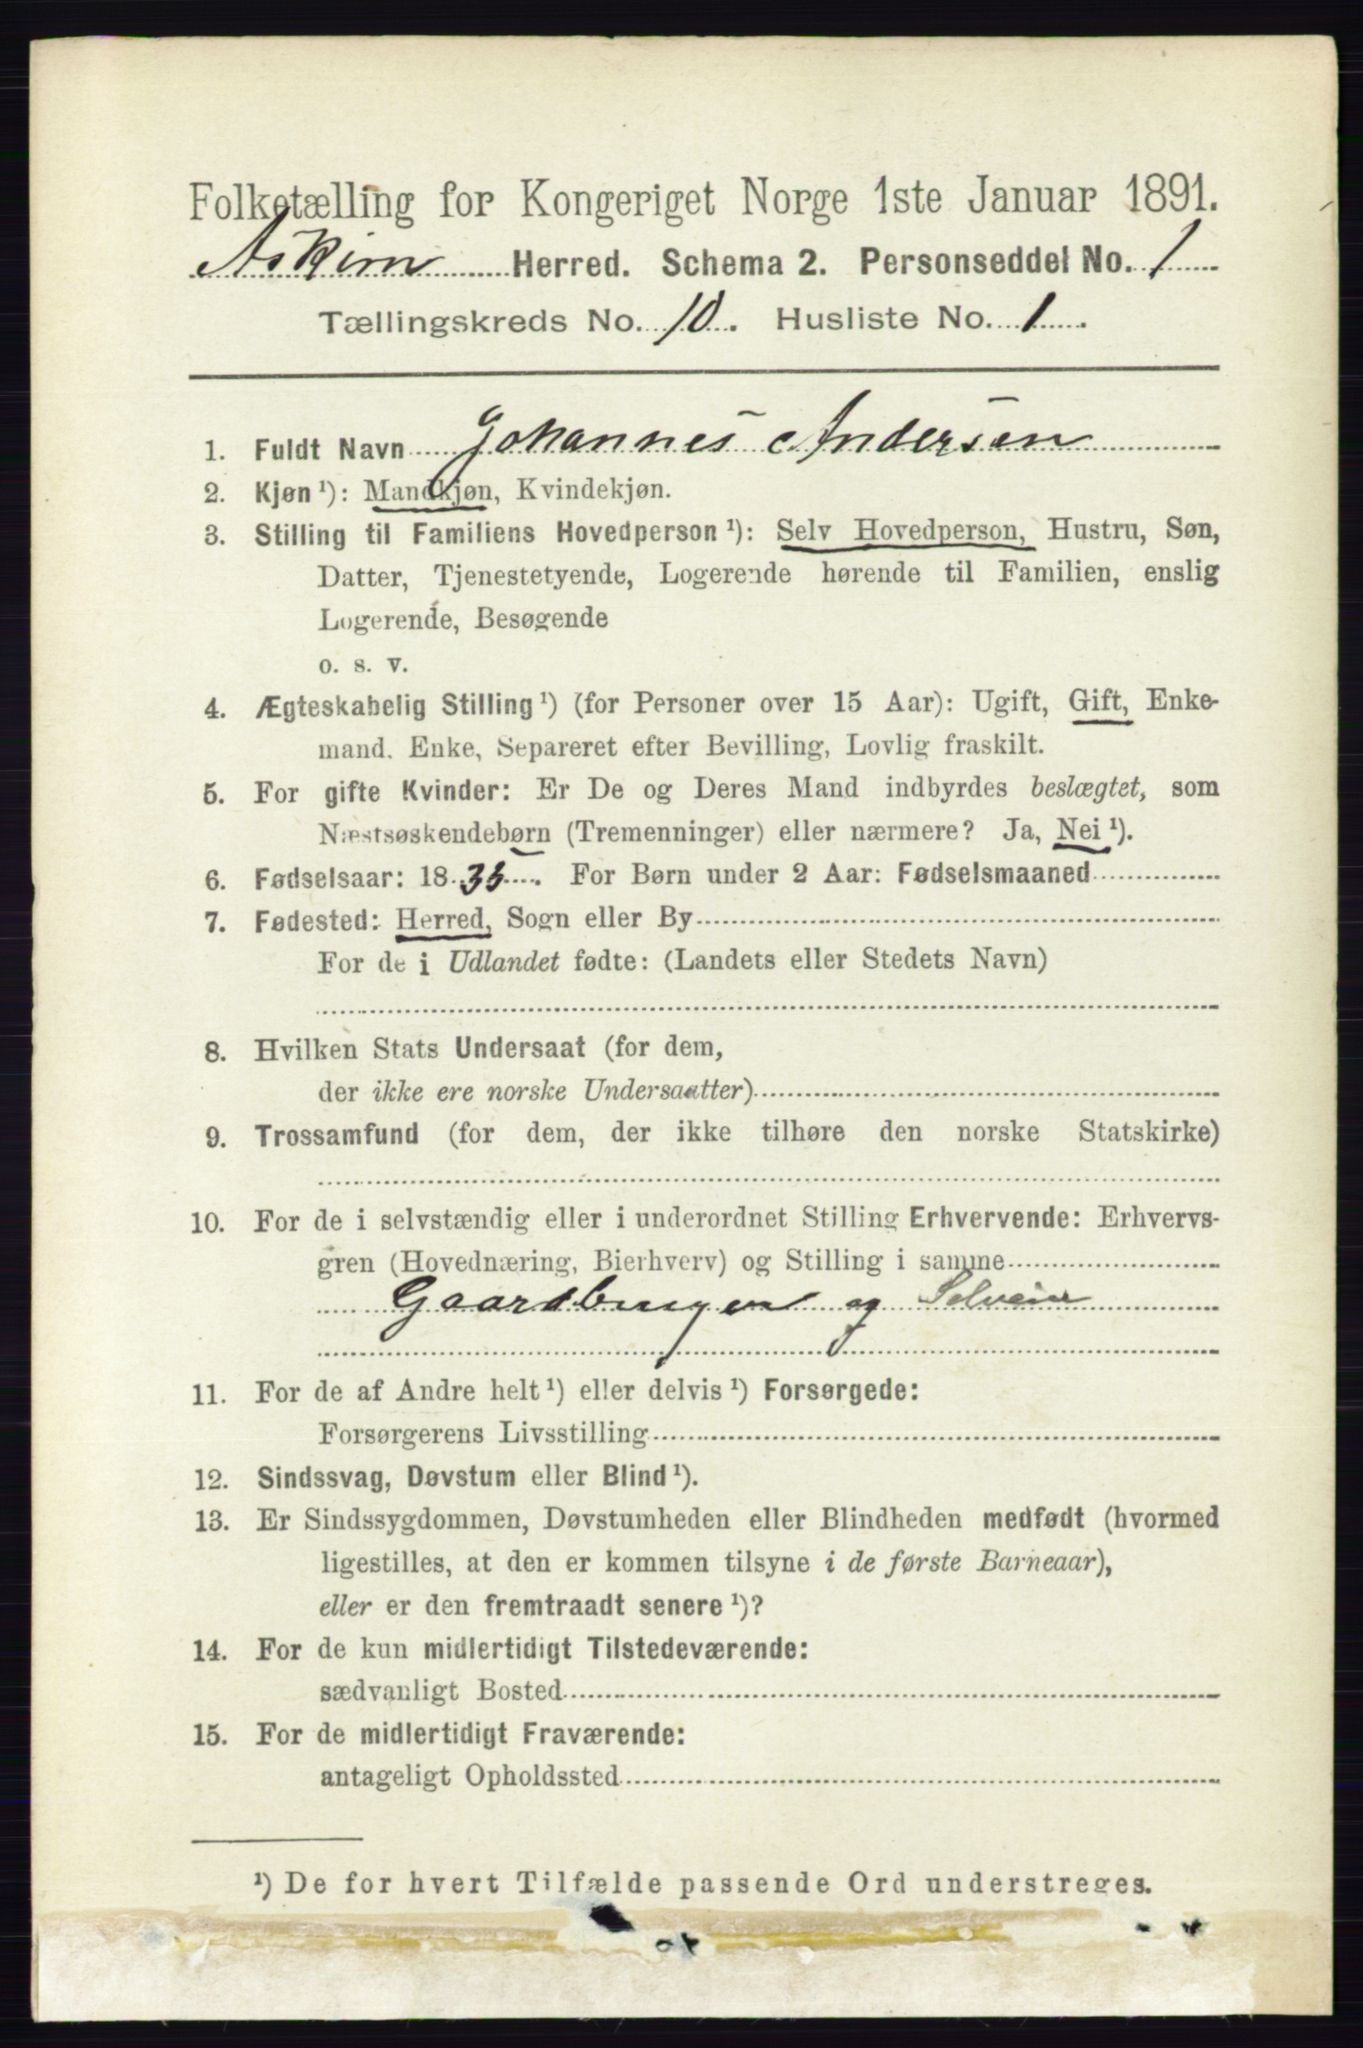 Folketælling for Kongeriget Norge 1ste Januar 1891.
Askim Herred. Schema 2. Personseddel No. 1
Tællingskreds No. 10. Husliste No. 1
1. Fuldt Navn Johannes Andersen
2. Kjøn ¹): Mandkjøn, Kvindekjøn.
3. Stilling til Familiens Hovedperson ¹): Selv Hovedperson, Hustru, Søn,
Datter, Tjenestetyende, Logerende hørende til Familien, enslig
Logerende, Besøgende
o. s. v.
4. Ægteskabelig Stilling ¹) (for Personer over 15 Aar): Ugift, Gift, Enke-
mand, Enke, Separeret efter Bevilling, Lovlig fraskilt.
5. For gifte Kvinder: Er De og Deres Mand indbyrdes beslægtet, som
Næstsøskendebørn (Tremenninger) eller nærmere? Ja, Nei ¹).
6. Fødselsaar: 1835. For Børn under 2 Aar: Fødselsmaaned
7. Fødested: Herred, Sogn eller By
For de i Udlandet fødte: (Landets eller Stedets Navn)
8. Hvilken Stats Undersaat (for dem,
der ikke ere norske Undersaatter)
9. Trossamfund (for dem, der ikke tilhøre den norske Statskirke)
10. For de i selvstændig eller i underordnet Stilling Erhvervende: Erhvervs-
gren (Hovednæring, Bierhverv) og Stilling i samme
Gaardbruger og Selveier
11. For de af Andre helt ¹) eller delvis ¹) Forsørgede:
Forsørgerens Livsstilling
12. Sindssvag, Døvstum eller Blind ¹).
13. Er Sindssygdommen, Døvstumheden eller Blindheden medfødt (hvormed
ligestilles, at den er kommen tilsyne i de første Barneaar),
eller er den fremtraadt senere ¹)?
14. For de kun midlertidigt Tilstedeværende:
sædvanligt Bosted
15. For de midlertidigt Fraværende:
antageligt Opholdssted
¹) De for hvert Tilfælde passende Ord understreges.